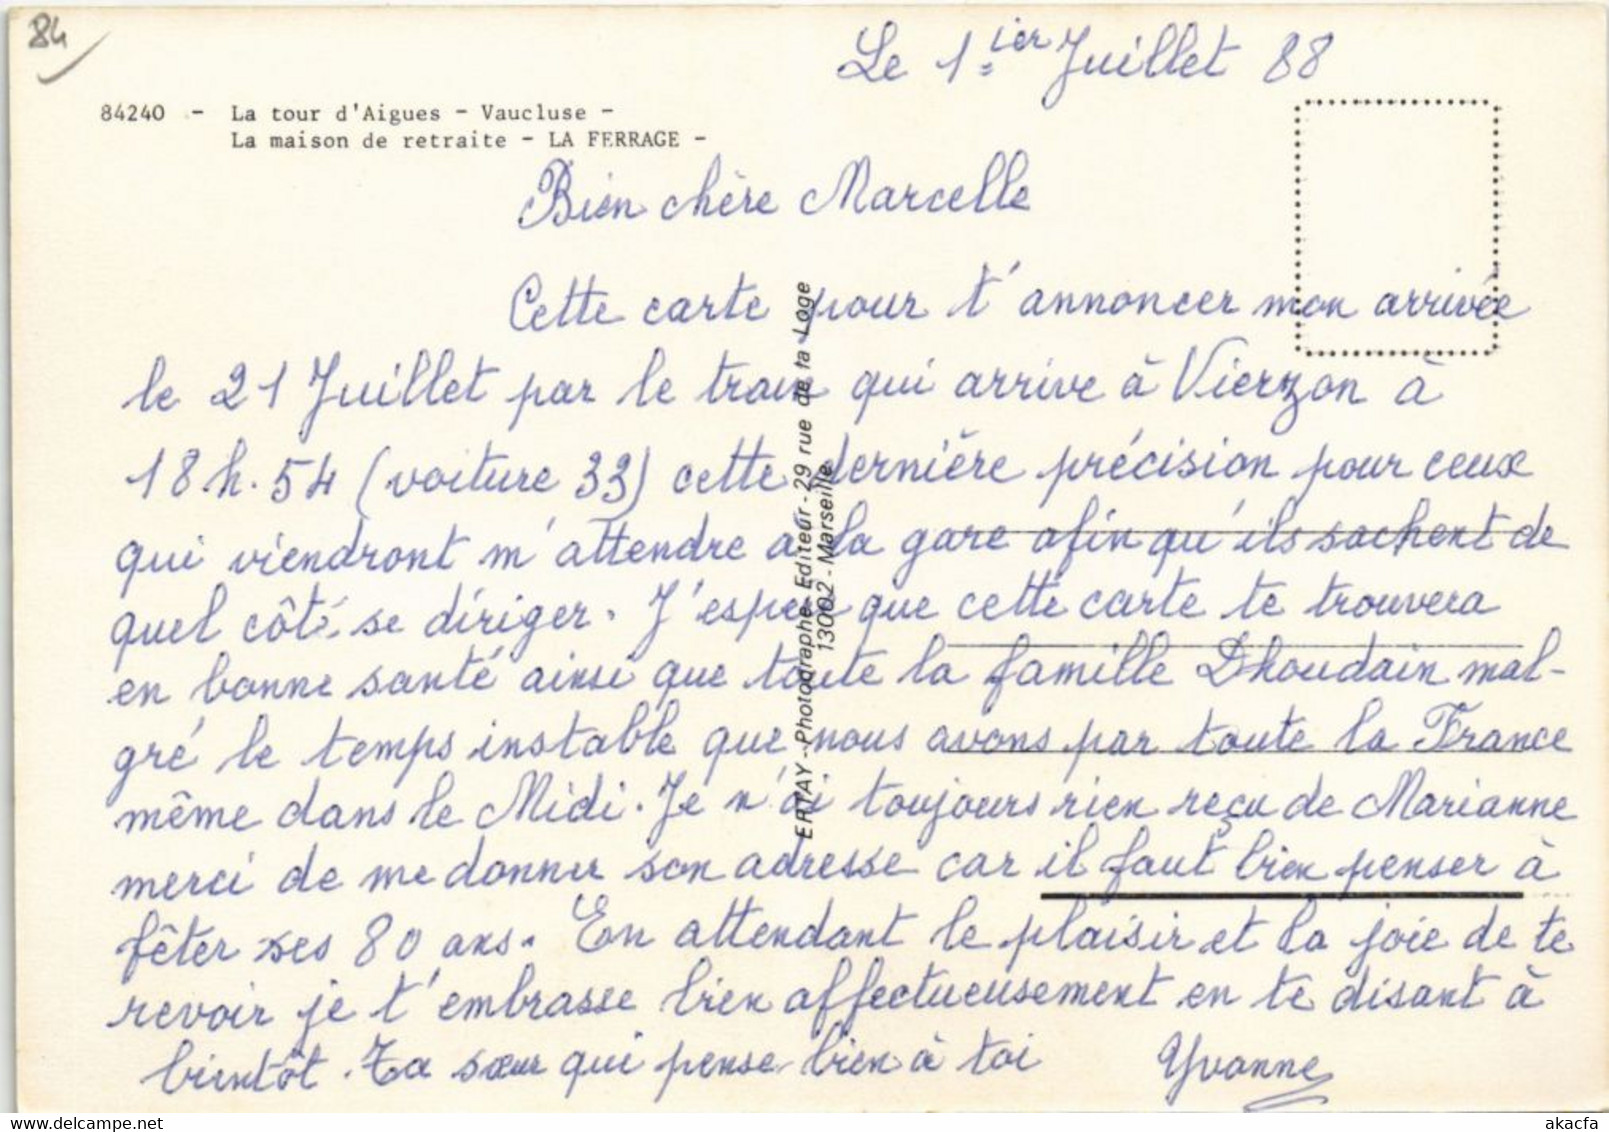 84
Le 1ier Juillet 88
84240 - La tour d'Aigues - Vaucluse -
La maison de retraite - LA FERRAGE -
Bien chère Marcelle
Cette carte pour t'annoncer mon arrivée
le 21 Juillet par le train qui arrive à Vierzon à
18.h.54 (voiture 33) cette dernière précision pour ceux
qui viendront m'attendre a la gare afin qu'ils sachent de
quel côté se diriger. J'espère que cette carte te trouvera
en bonne santé ainsi que toute la famille Dhoudain mal-
gré le temps instable que nous avons par toute la France
même dans le Midi. Je n'ai toujours rien reçu de Marianne
merci de me donner son adresse car il faut bien penser à
fêter ses 80 ans. En attendant le plaisir et la joie de te
revoir je t'embrasse bien affectueusement en te disant à
bientôt. Ta sœur qui pense bien à toi Yvonne
ERTAY - Photographe-Editeur - 29 rue de la Loge
13002 - Marseille
www.delcampe.net
akacfa